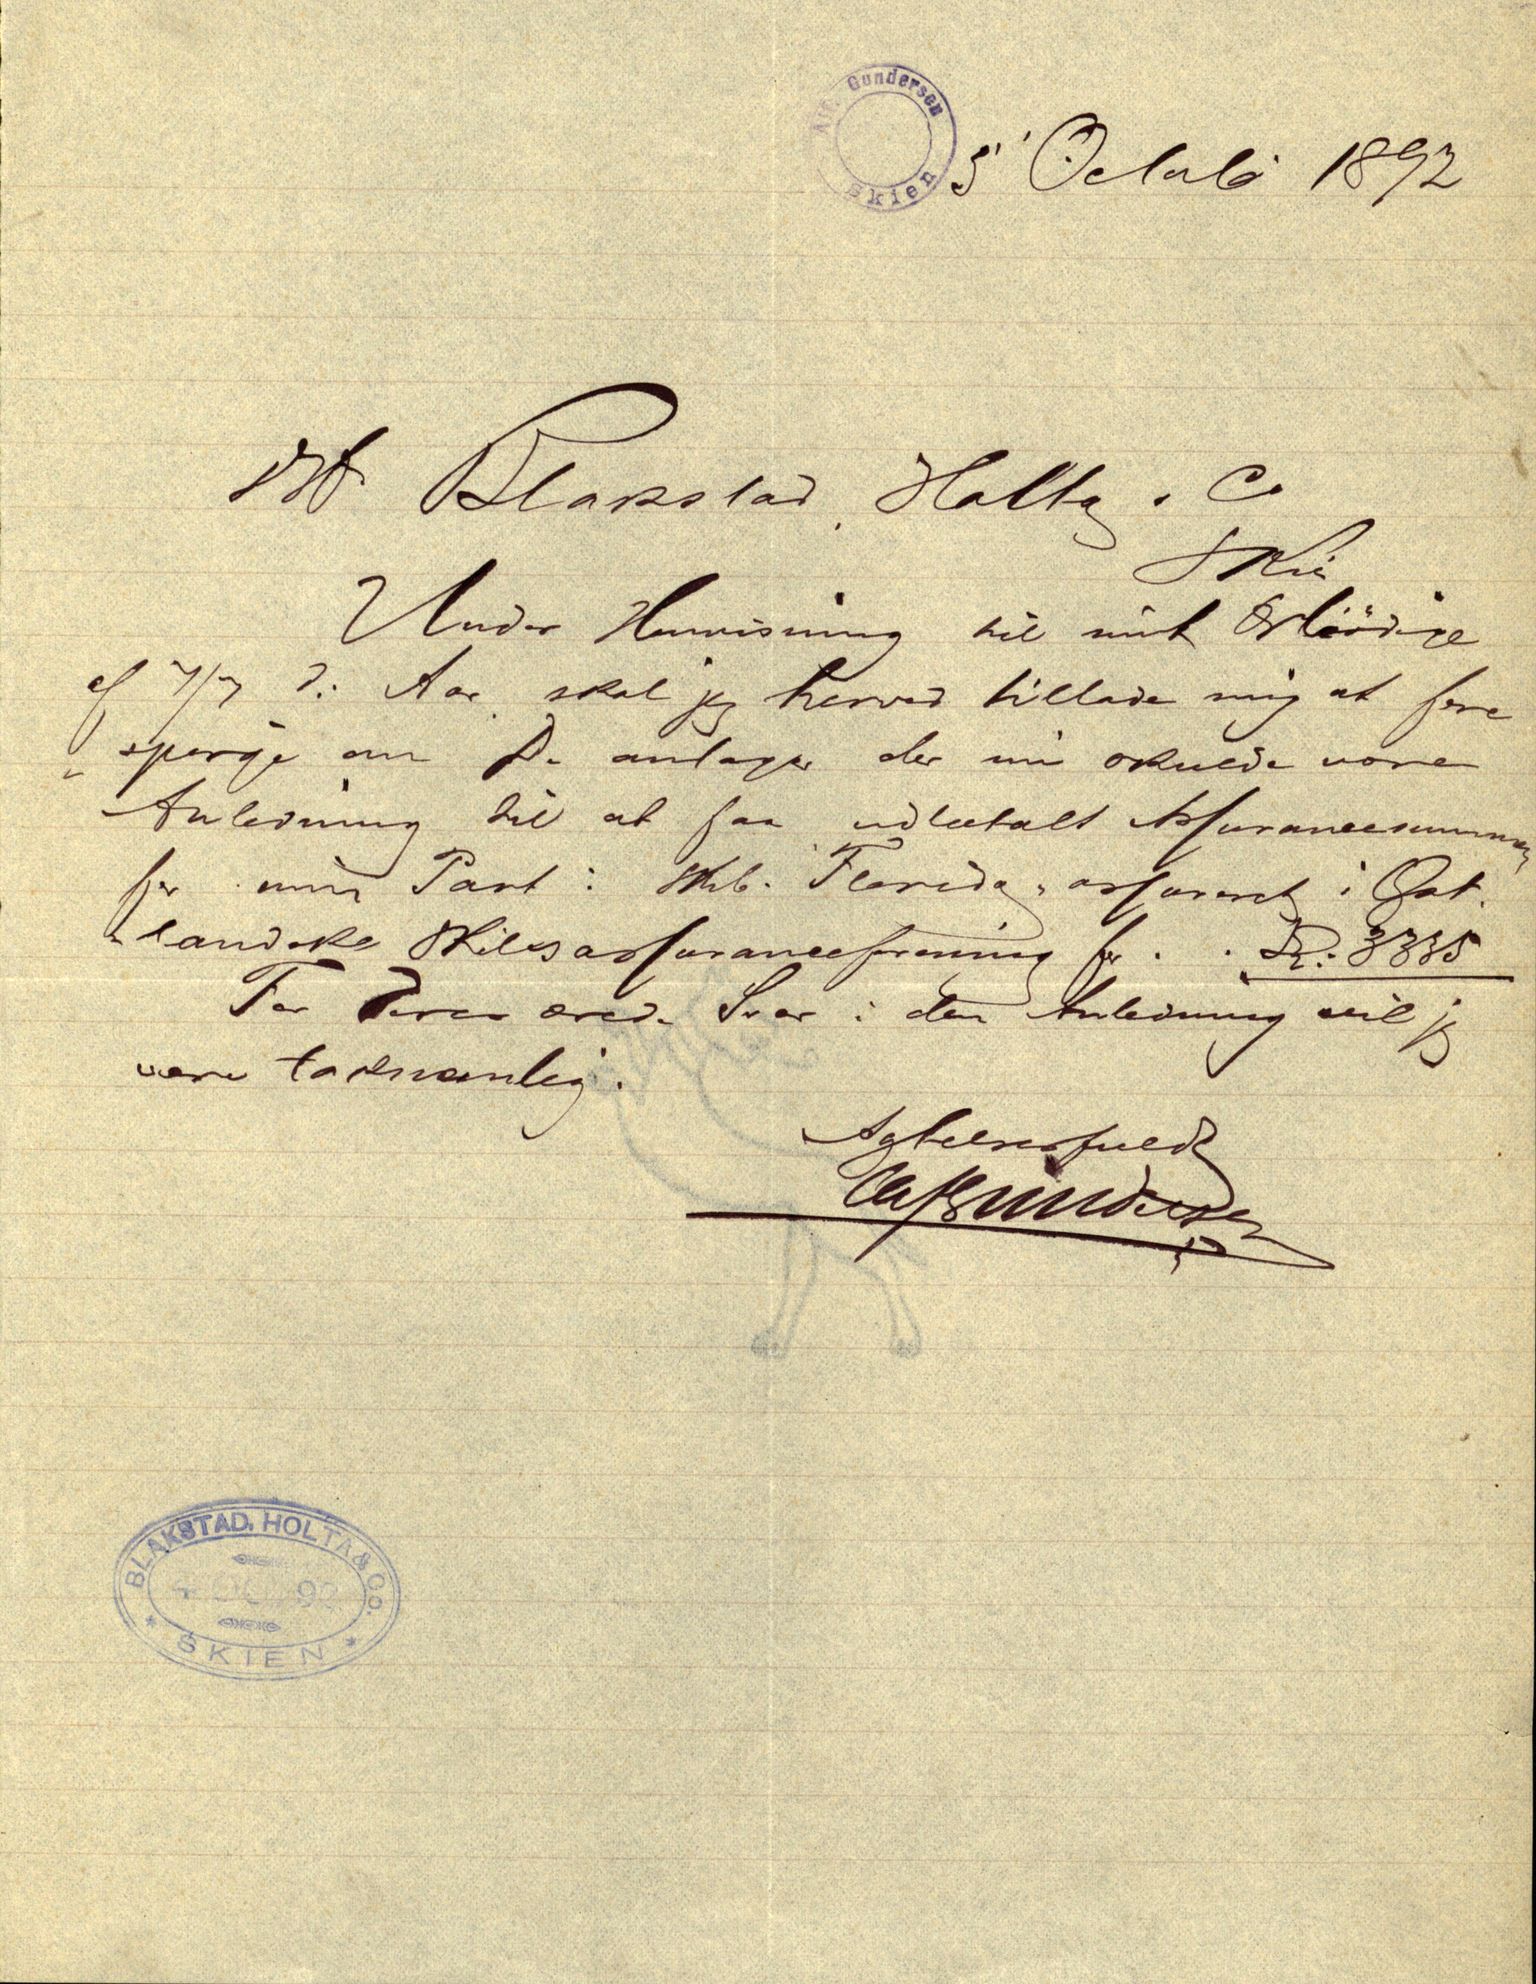 Alf. Gundersen
Skien
5' October 1892
Hr Blakstad, Holta & Co
Skien
Under Henvisning til mit Ærbødige
af 7/7 d: Aar skal jeg herved tillade mig at fore
spørge om De antager der nu skulde være
Anledning til at faa udbetalt Assurancesummen
for min Part i Skb. Florida, assureret i Øst
landske Skibsassuranceforening for . . Kr: 3335
For Deres ærede Svar i den Anledning vil jeg
være taknemlig.
Agtelsesfuldt
Alf Gundersen
BLAKSTAD, HOLTA & CO.
4 OCT 92
* SKIEN *